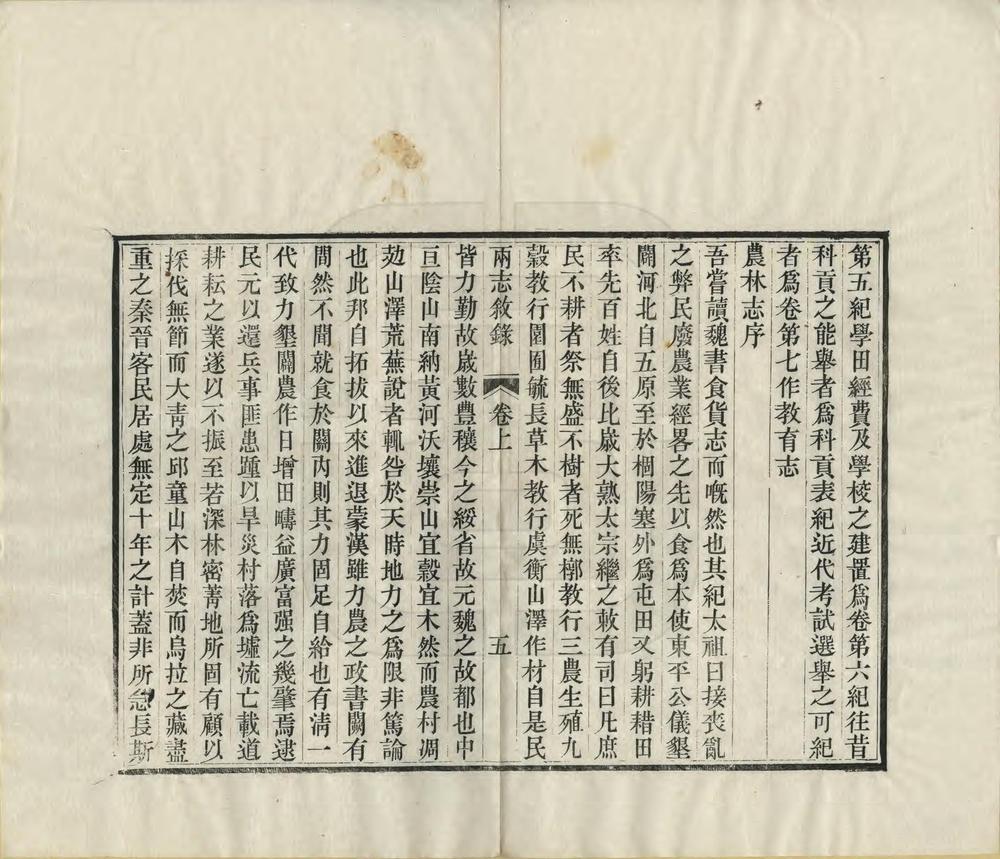 第五紀學田經費及學校之建置爲卷第六紀往昔
科貢之能舉者爲科貢表紀近代考試選舉之可紀
者爲卷第七作教育志
農林志序
吾嘗讀魏書食貨志而嘅然也其紀太祖曰接喪亂
之弊民廢農業經畧之先以食爲本使東平公儀墾
闢河北自五原至於棝陽塞外爲屯田又躬耕耤田
率先百姓自後比歲大熟太宗繼之敕有司曰凡庶
民不耕者祭無盛不樹者死無槨教行三農生殖九
穀教行園囿毓長草木教行虞衡山澤作材自是民
兩志敘錄 卷上 五
皆力勤故歲數豐穰今之綏省故元魏之故都也中
亘陰山南納黃河沃壤崇山宜穀宜木然而農村凋
攰山澤荒蕪說者輒咎於天時地力之爲限非篤論
也此邦自拓拔以來進退蒙漢雖力農之政書闕有
間然不聞就食於關內則其力固足自給也有淸一
代致力墾闢農作日增田疇益廣富强之幾肇焉逮
民元以還兵事匪患踵以旱災村落爲墟流亡載道
耕耘之業遂以不振至若深林密菁地所固有顧以
採伐無節而大靑之邱童山木自焚而烏拉之藏盡
重之秦晉客民居處無定十年之計蓋非所急長斯